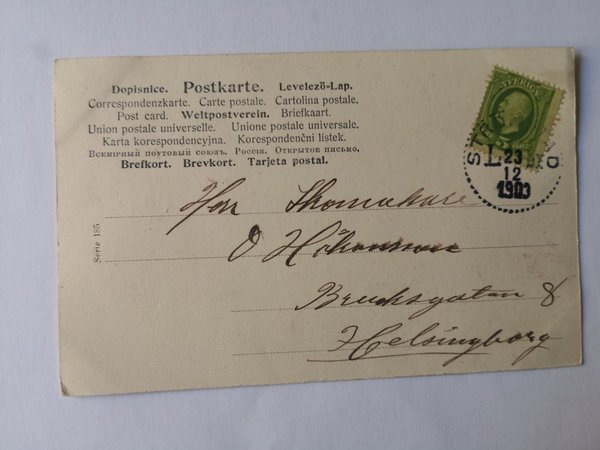 Dopisnice. Postkarte. Levelező-Lap.
Correspondenzkarte. Carte postale. Cartolina postale.
Post card. Weltpostverein. Briefkaart.
Union postale universelle. Unione postale universale.
Karta korespondencyjna. Korespondenčni listek.
Всемірный почтовый союзъ. Россія. Открытое письмо.
Brefkort. Brevkort. Tarjeta postal.
SVERIGE
23
12
1903
Serie 185
Herr
O Håkansson
Bruksgatan 8
Helsingborg